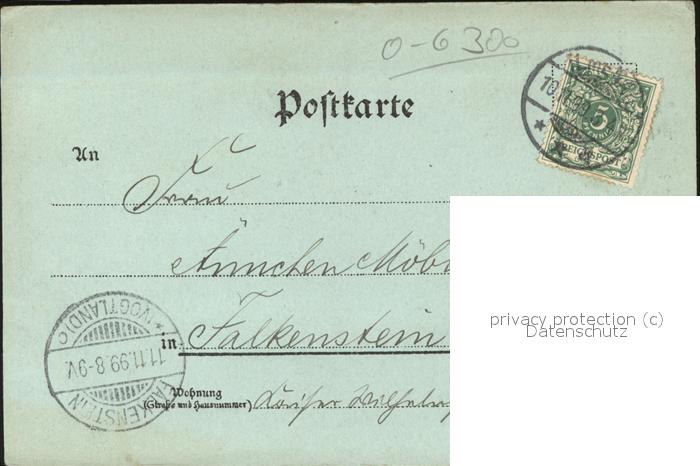 0-6300
Postkarte
5
REICHSPOST
An
Frau
Ännchen Möb
in Falkenstein
Wohnung
(Straße und Hausnummer)
Kaiser Wilhelm
FALKENSTEIN
11.11.99.8-9V.
*(VOGTLAND)C
privacy protection (c)
Datenschutz